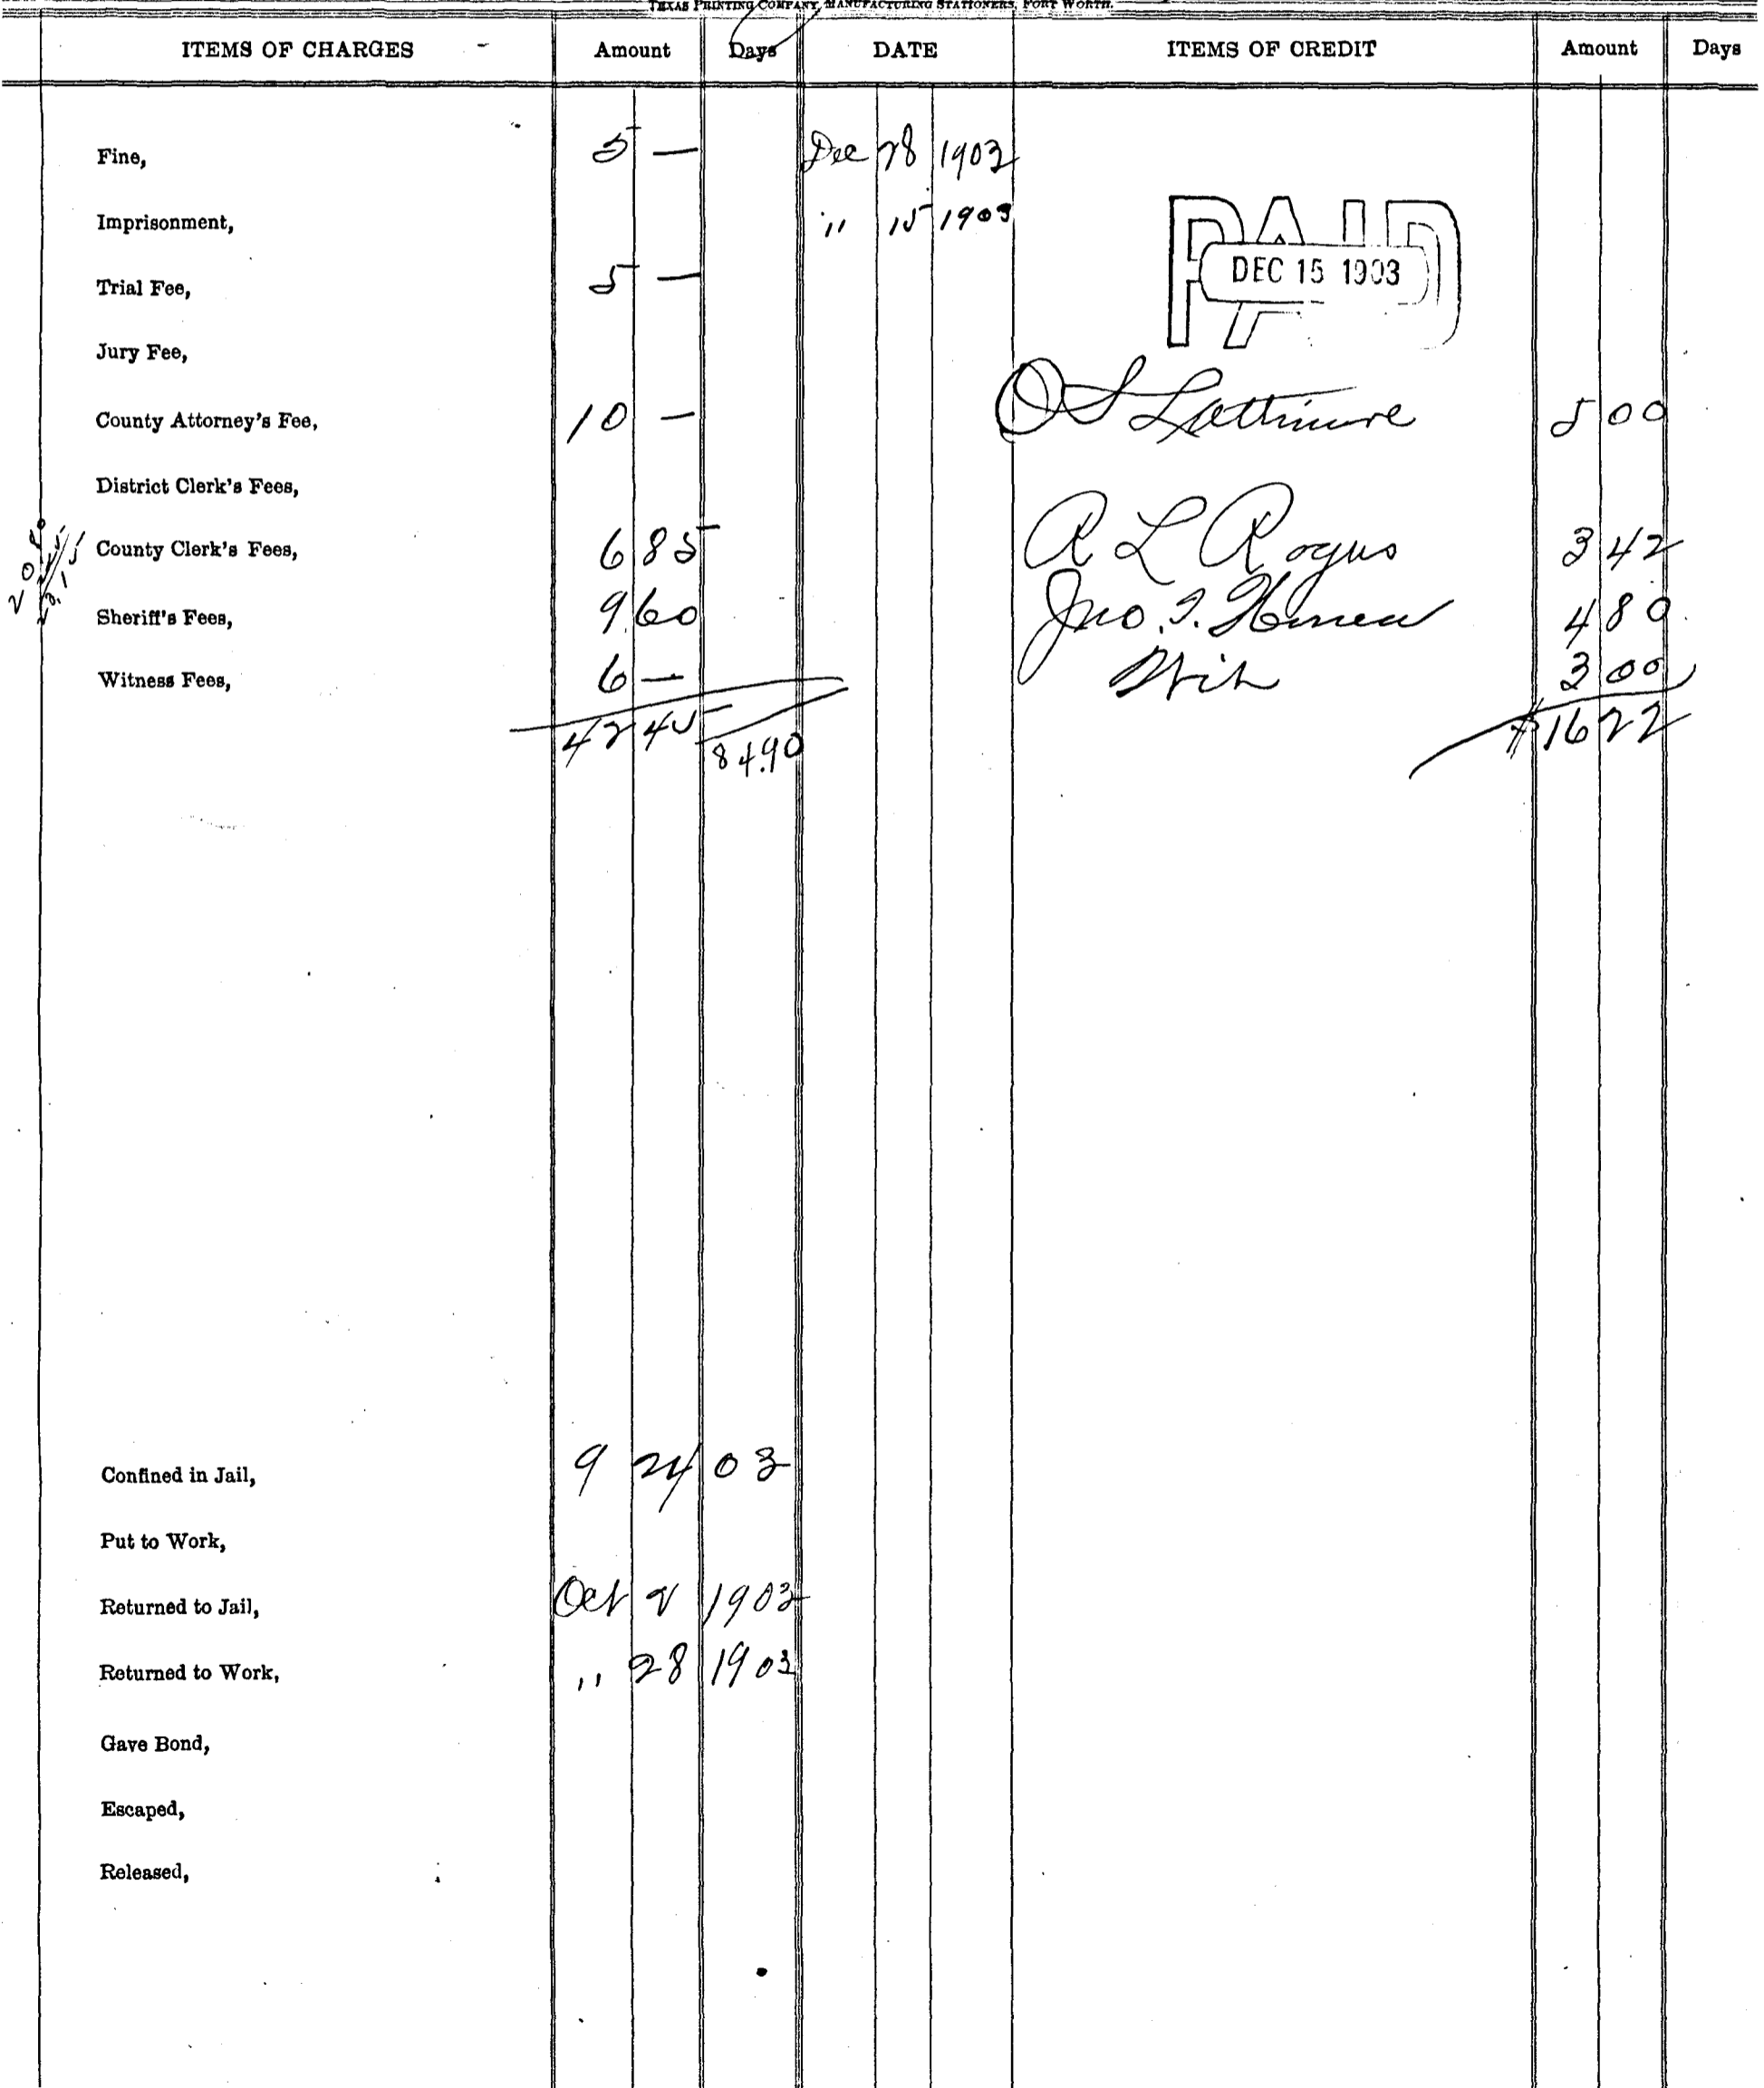 TEXAS PRINTING COMPANY, MANUFACTURING STATIONERS, FORT WORTH.
ITEMS OF CHARGES Amount Days DATE ITEMS OF CREDIT Amount Days
Fine, 5 — Dec 28 1903
Imprisonment, " 15 1903
PAID
DEC 15 1903
Trial Fee, 5 —
Jury Fee,
County Attorney's Fee, 10 — O S Lattimore 5 00
District Clerk's Fees,
County Clerk's Fees, 6 85 R L Rogers 3 42
Sheriff's Fees, 9 60 Jno. T. Honea 4 80
Witness Fees, 6 — Wit 3 00
42 45 84.90 $16 22
Confined in Jail, 9 24 03
Put to Work,
Returned to Jail, Oct 2 1903
Returned to Work, " 28 1903
Gave Bond,
Escaped,
Released,